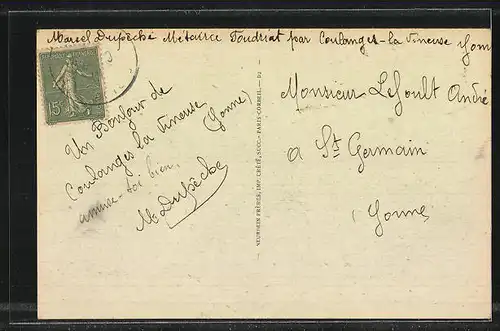 Marcel Dupêché Métairie Toudriat par Coulanges-la Vineuse Yonne
15c
Un Bonjour de
Coulanges la Vineuse
(Yonne)
amuse-toi bien.
M Dupêche
NEURDEIN FRÈRES, IMP. CRÉTÉ, SUCC. - PARIS-CORBEIL.
Monsieur André
à St Germain
Yonne